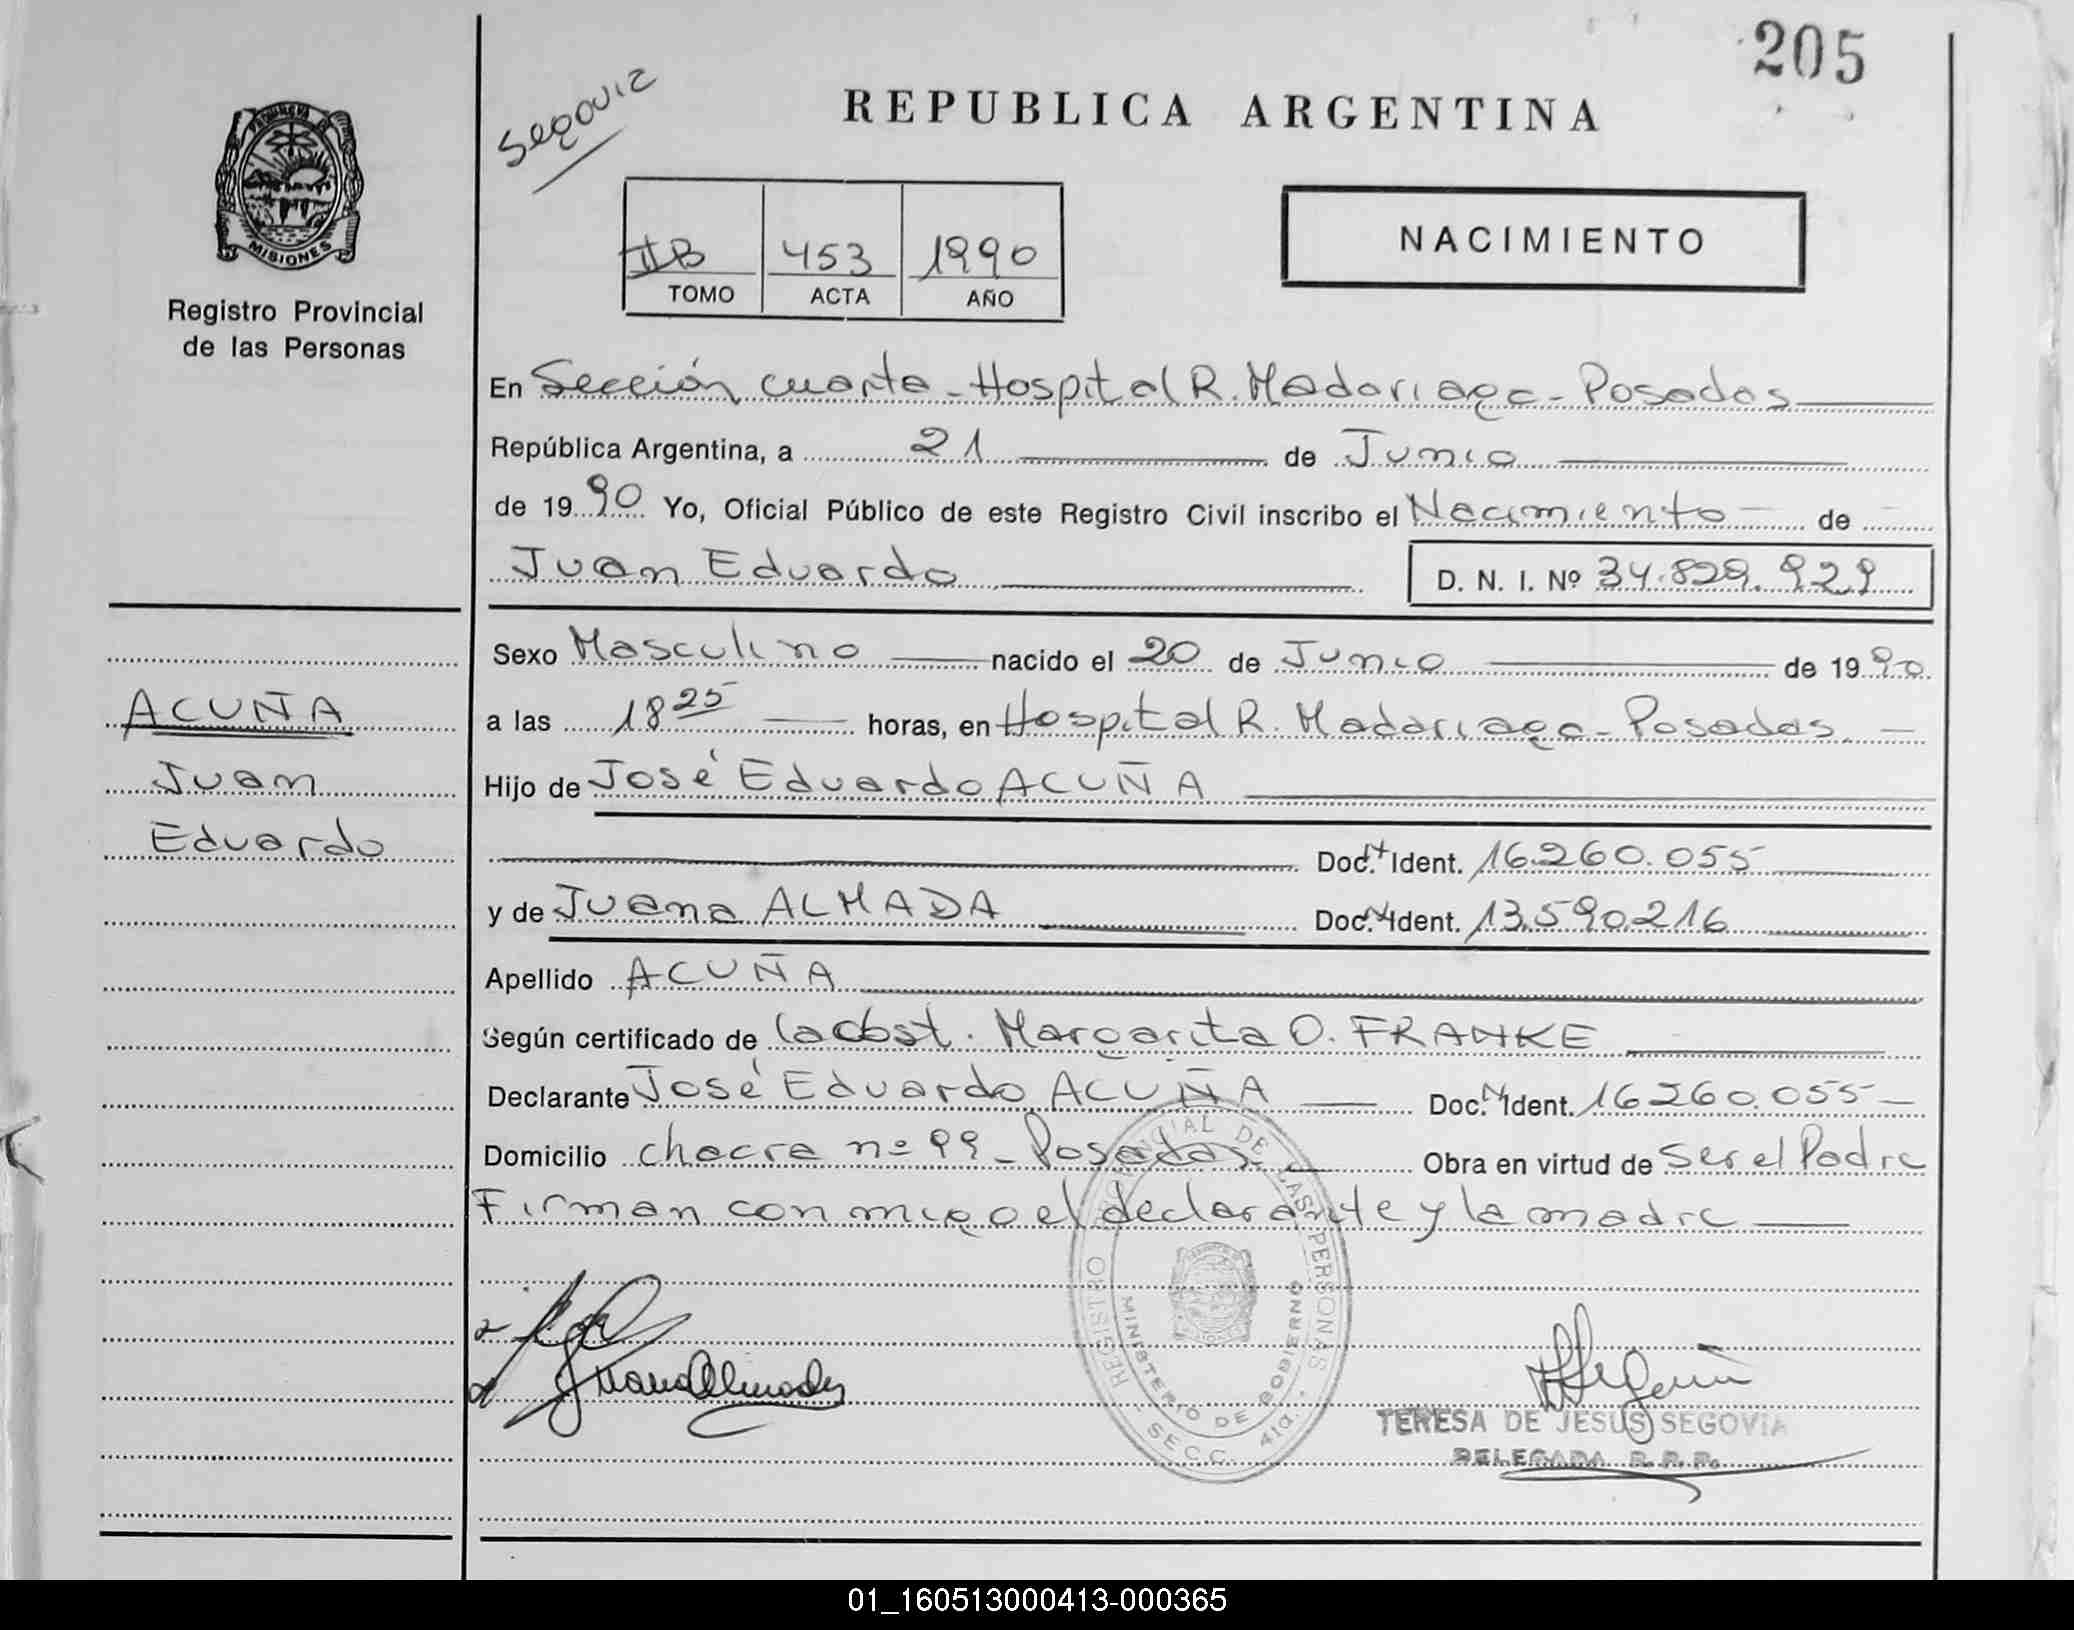 205
Segovia
REPUBLICA ARGENTINA
PROVINCIA DE
MISIONES
Registro Provincial
de las Personas
IIB 453 1990
TOMO ACTA AÑO
NACIMIENTO
En Sección cuarta - Hospital R. Madariaga - Posadas
República Argentina, a 21 de Junio
de 1990 Yo, Oficial Público de este Registro Civil inscribo el Nacimiento de
Juan Eduardo D. N. I. Nº 34.829.929
Sexo Masculino nacido el 20 de Junio de 1990
a las 18 25 horas, en Hospital R. Madariaga - Posadas. -
Hijo de José Eduardo ACUÑA
Doc. Ident. 16.260.055
y de Juana ALMADA Doc. Ident. 13.590.216
Apellido ACUÑA
Según certificado de la obst. Margarita O. FRANKE
Declarante José Eduardo ACUÑA Doc. Ident. 16.260.055 -
Domicilio chacra nº 99 - Posadas - Obra en virtud de Ser el Padre
Firman con migo el declarante y la madre
ACUÑA
Juan
Eduardo
REGISTRO PROVINCIAL DE LAS PERSONAS
MINISTERIO DE GOBIERNO
SECC. 4ta.
Juana Almada
TERESA DE JESUS SEGOVIA
DELEGADA R. P. P.
01_160513000413-000365